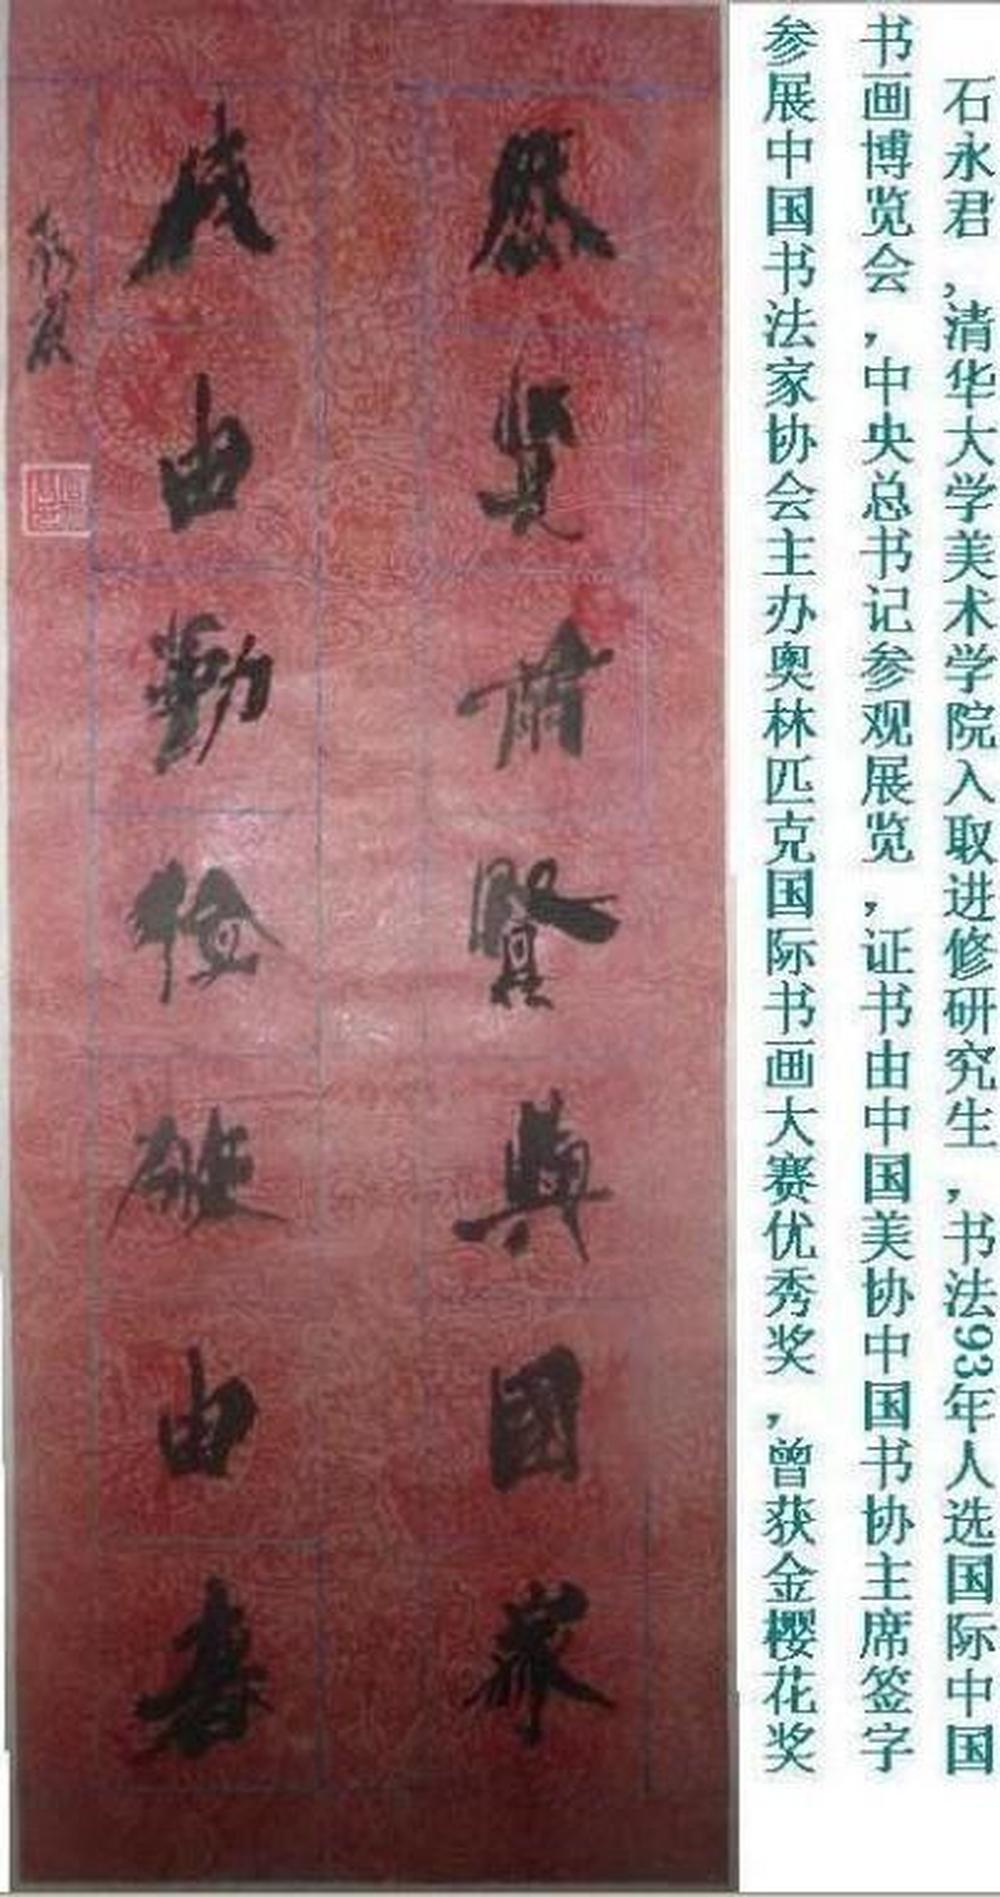 石永君，清华大学美术学院入取进修研究生，书法93年人选国际中国
书画博览会，中央总书记参观展览，证书由中国美协中国书协主席签字
参展中国书法家协会主办奥林匹克国际书画大赛优秀奖，曾获金樱花奖
歷覽前賢與國家
成由勤儉破由奢